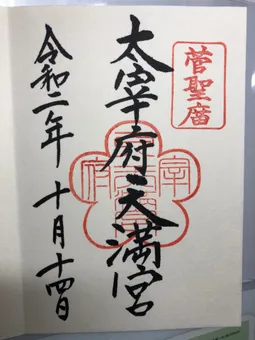 菅聖廟
太宰府天満宮
令和二年 十月十四日